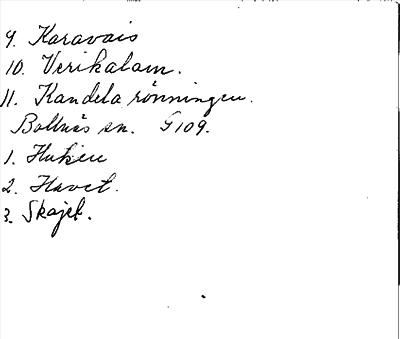 9. Karavais
10. Verikalam.
11. Kandela rönningen.
Bollnäs sn. G109.
1. Huken
2. Havet.
3. Skajet.